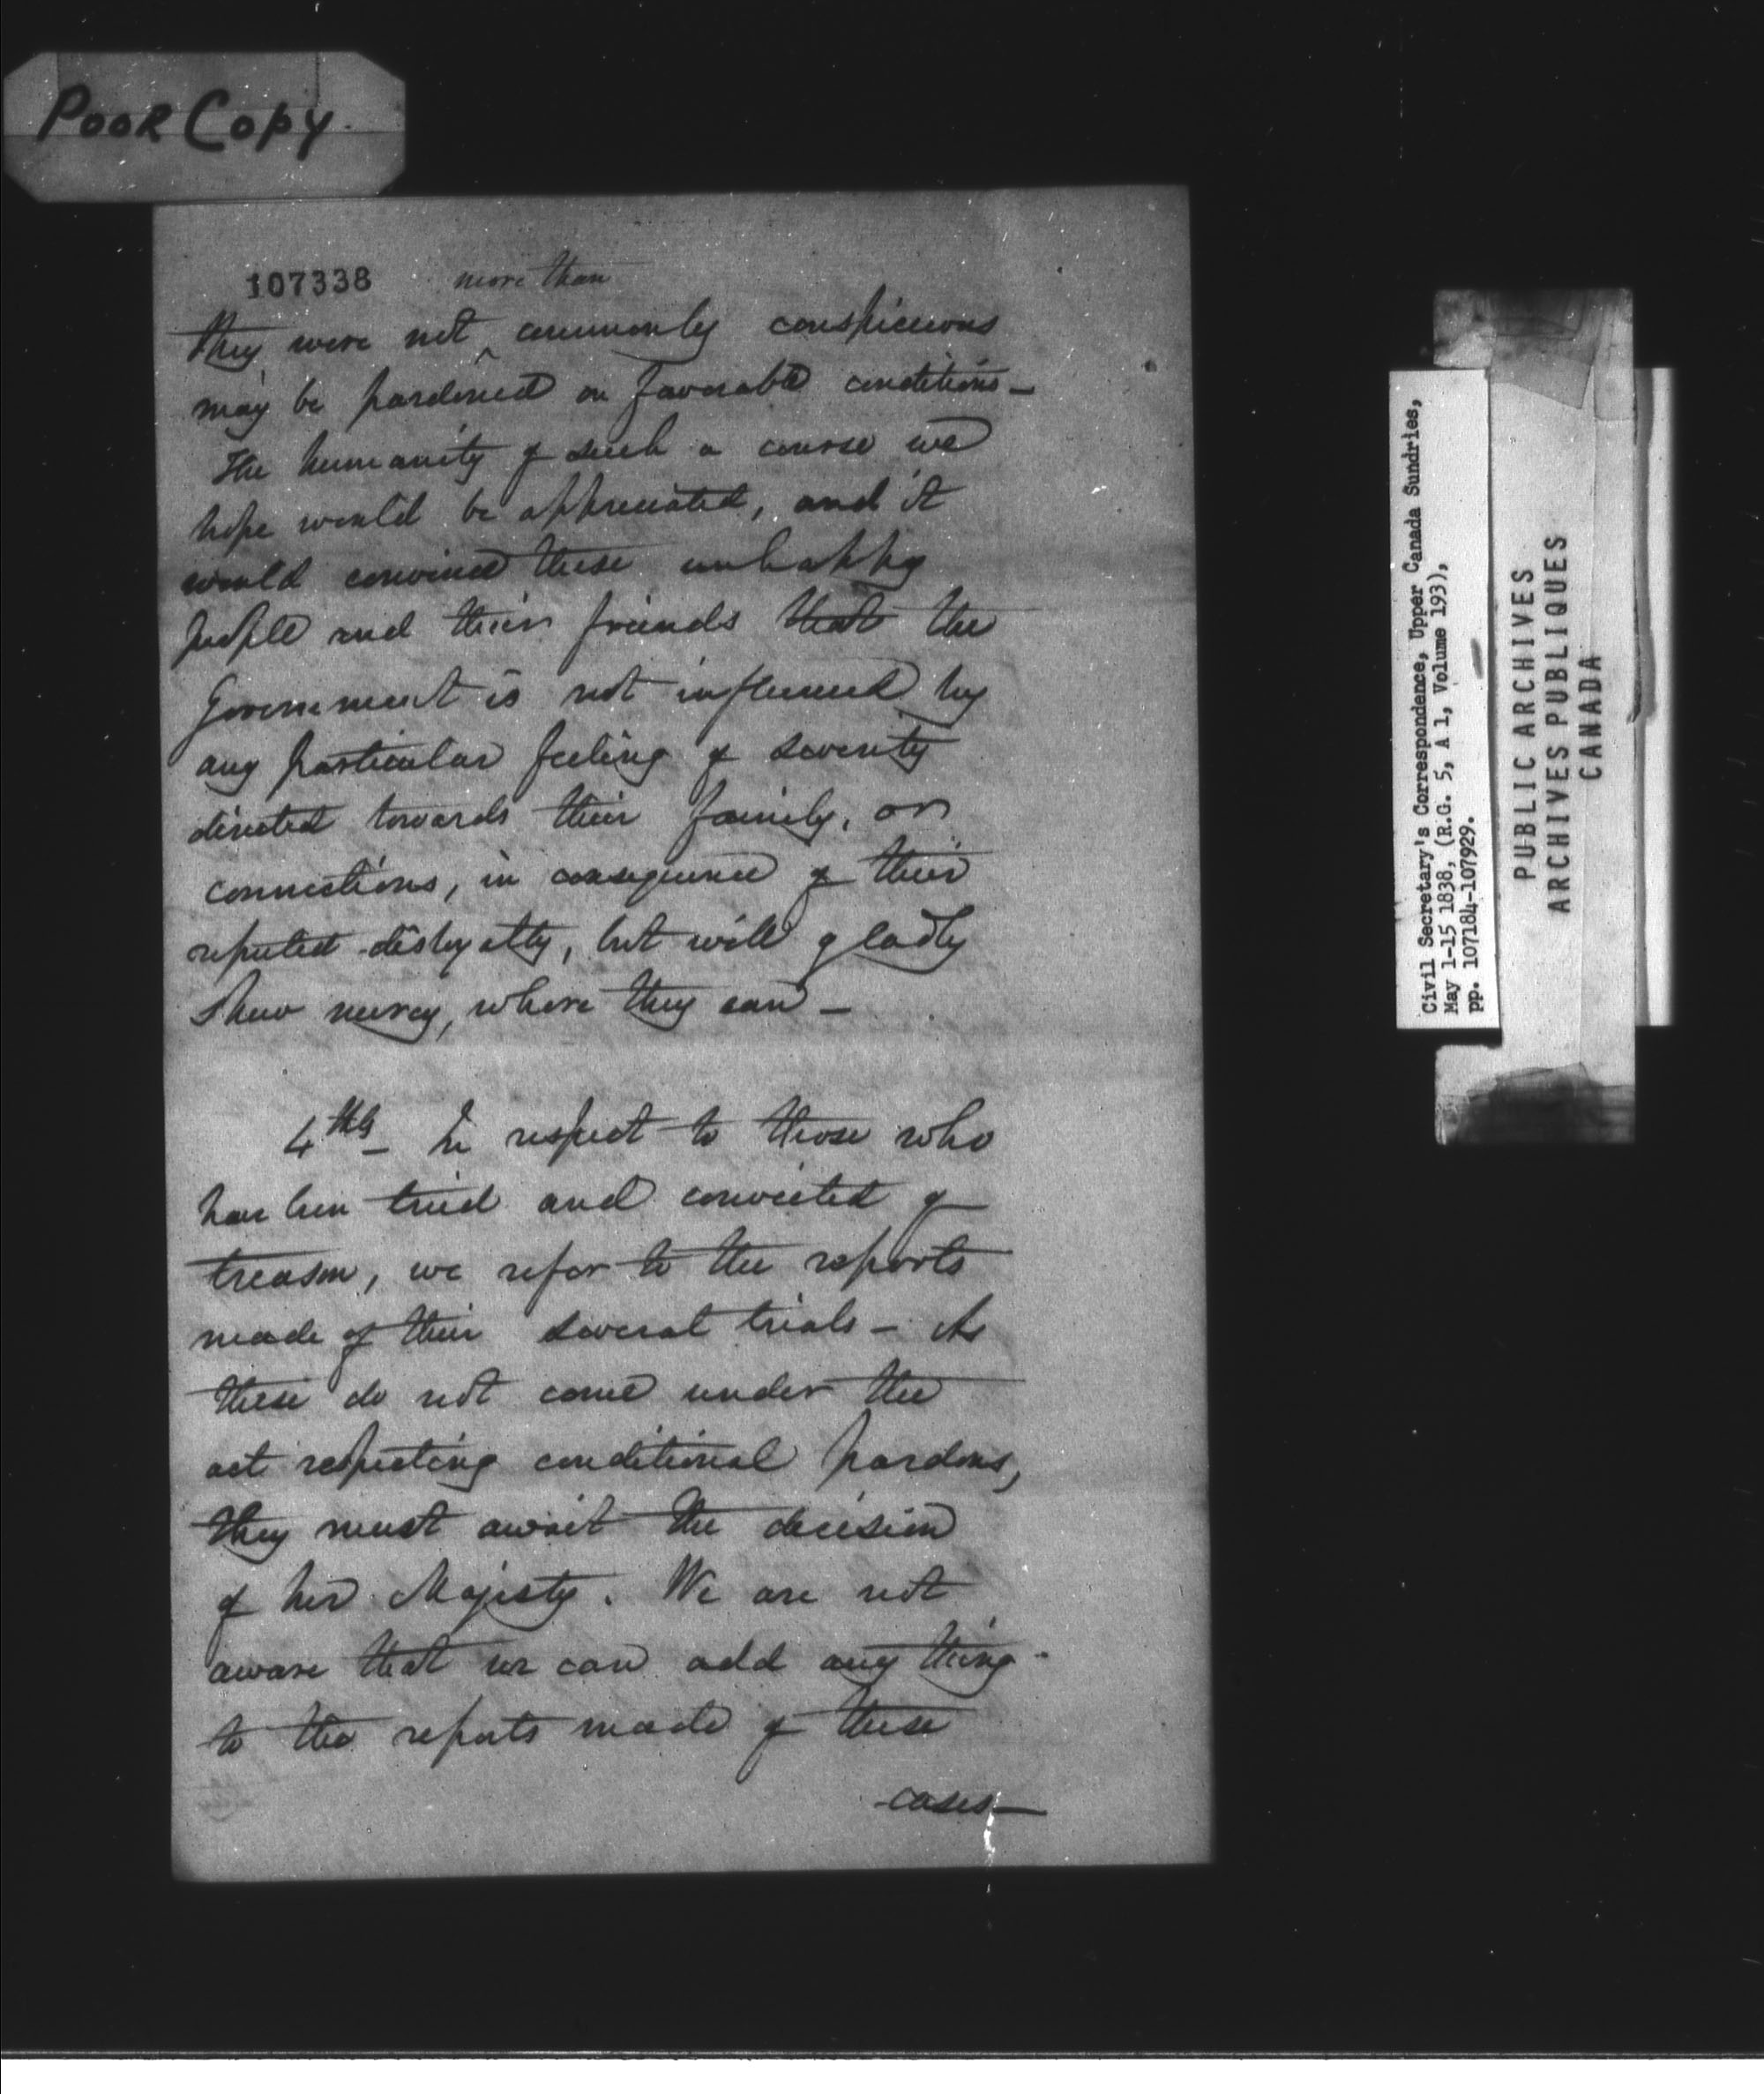 Poor Copy.
107338
more than
they were not ^ commonly conspicuous
may be pardoned on favorable conditions –
The humanity of such a course we
hope would be appreciated, and it
would convince these unhappy
people and their friends that the
Government is not influenced by
any particular feeling of severity
directed towards their family, or
connections, in consequence of their
reputed disloyalty, but will gladly
shew mercy, where they can –
4thly – In respect to those who
have been tried and convicted of
treason, we refer to the reports
made of their several trials – As
these do not come under the
act respecting conditional pardons,
they must await the decision
of her Majesty. We are not
aware that we can add any thing
to the reports made of these
– cases –
Civil Secretary's Correspondence, Upper Canada Sundries,
May 1-15 1838, (R.G. 5, A 1, Volume 193),
pp. 107184-107929.
PUBLIC ARCHIVES
ARCHIVES PUBLIQUES
CANADA